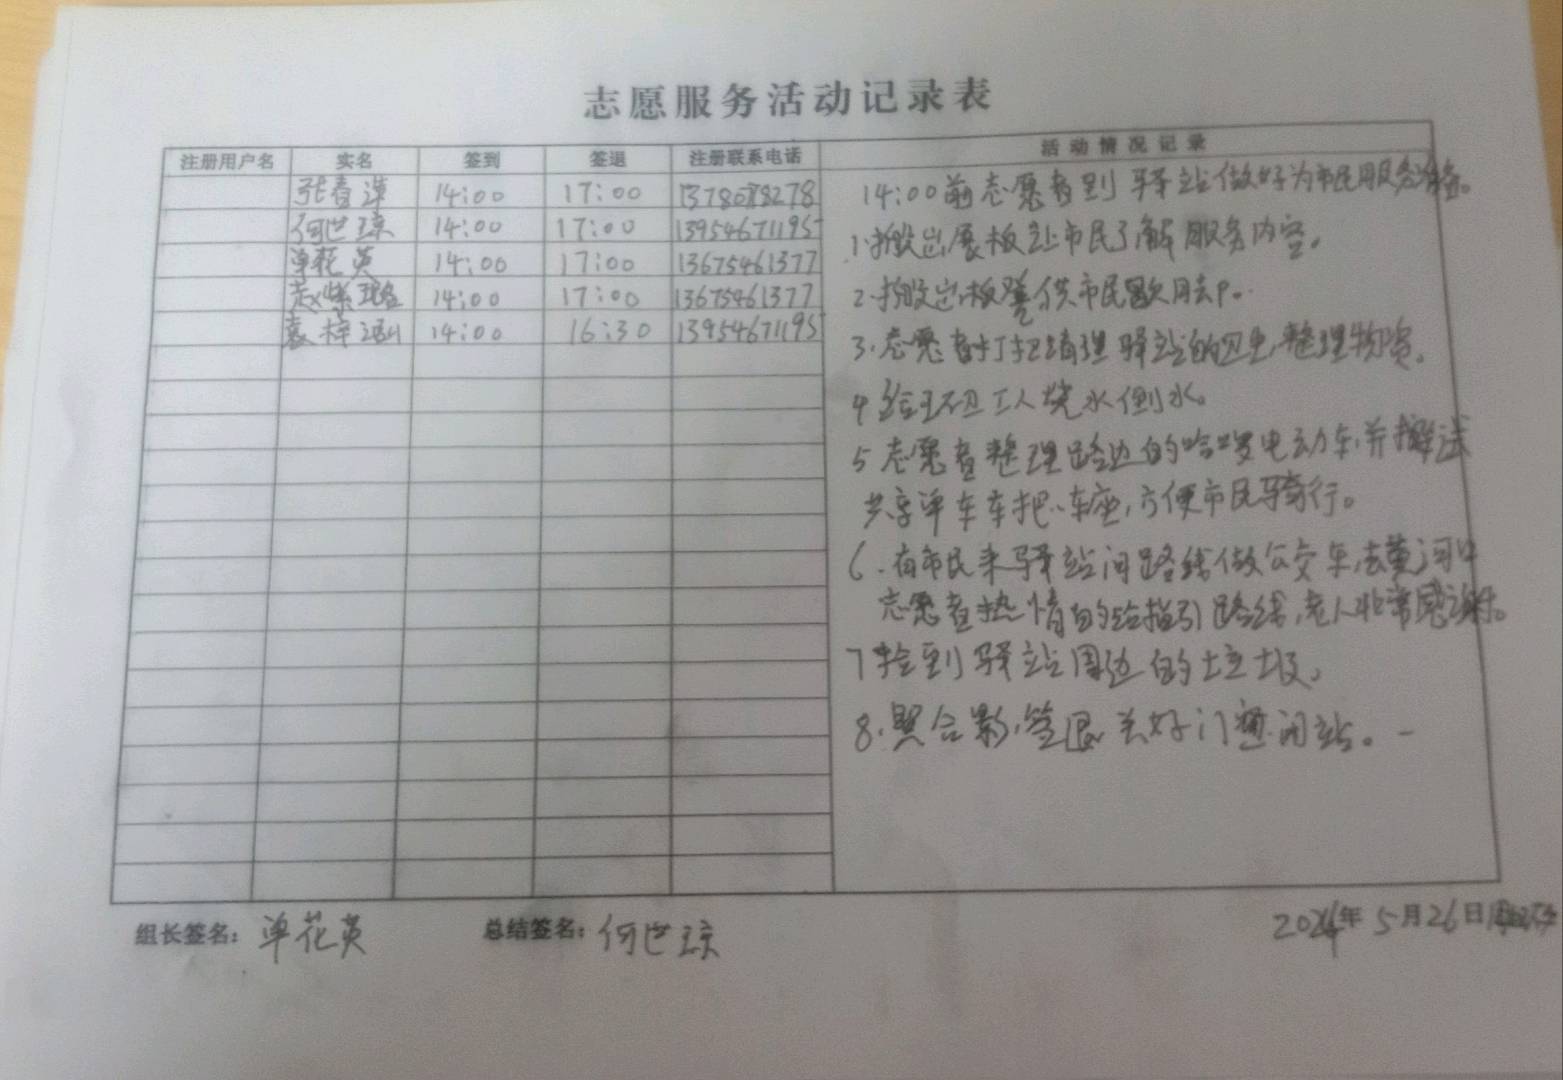 志愿服务活动记录表
注册用户名 实名 签到 签退 注册联系电话 活动情况记录
张春莲 14:00 17:00 13780788278
何世琼 14:00 17:00 13954671195
单花英 14:00 17:00 13675461377
赵紫 14:00 17:00 13675461377
袁梓涵 14:00 16:30 13954671195
14:00前志愿者到驿站做好为市民服务准备。
1.搬出展板让市民了解服务内容。
2.搬出板凳供市民歇
3.志愿者打扫清理驿站的卫生,整理物资。
4给环卫工人烧水倒水。
5志愿者整理路边的哈啰电动车,并擦试
共享单车车把、车座,方便市民骑行。
6.有市民来驿站问路线做公交车,去黄河口
志愿者热情的给指引路线,老人非常感谢。
7捡到驿站周边的垃圾。
8.照合影,签退,关好门窗闭站。
组长签名:单花英 总结签名:何世琼 2024年5月26日